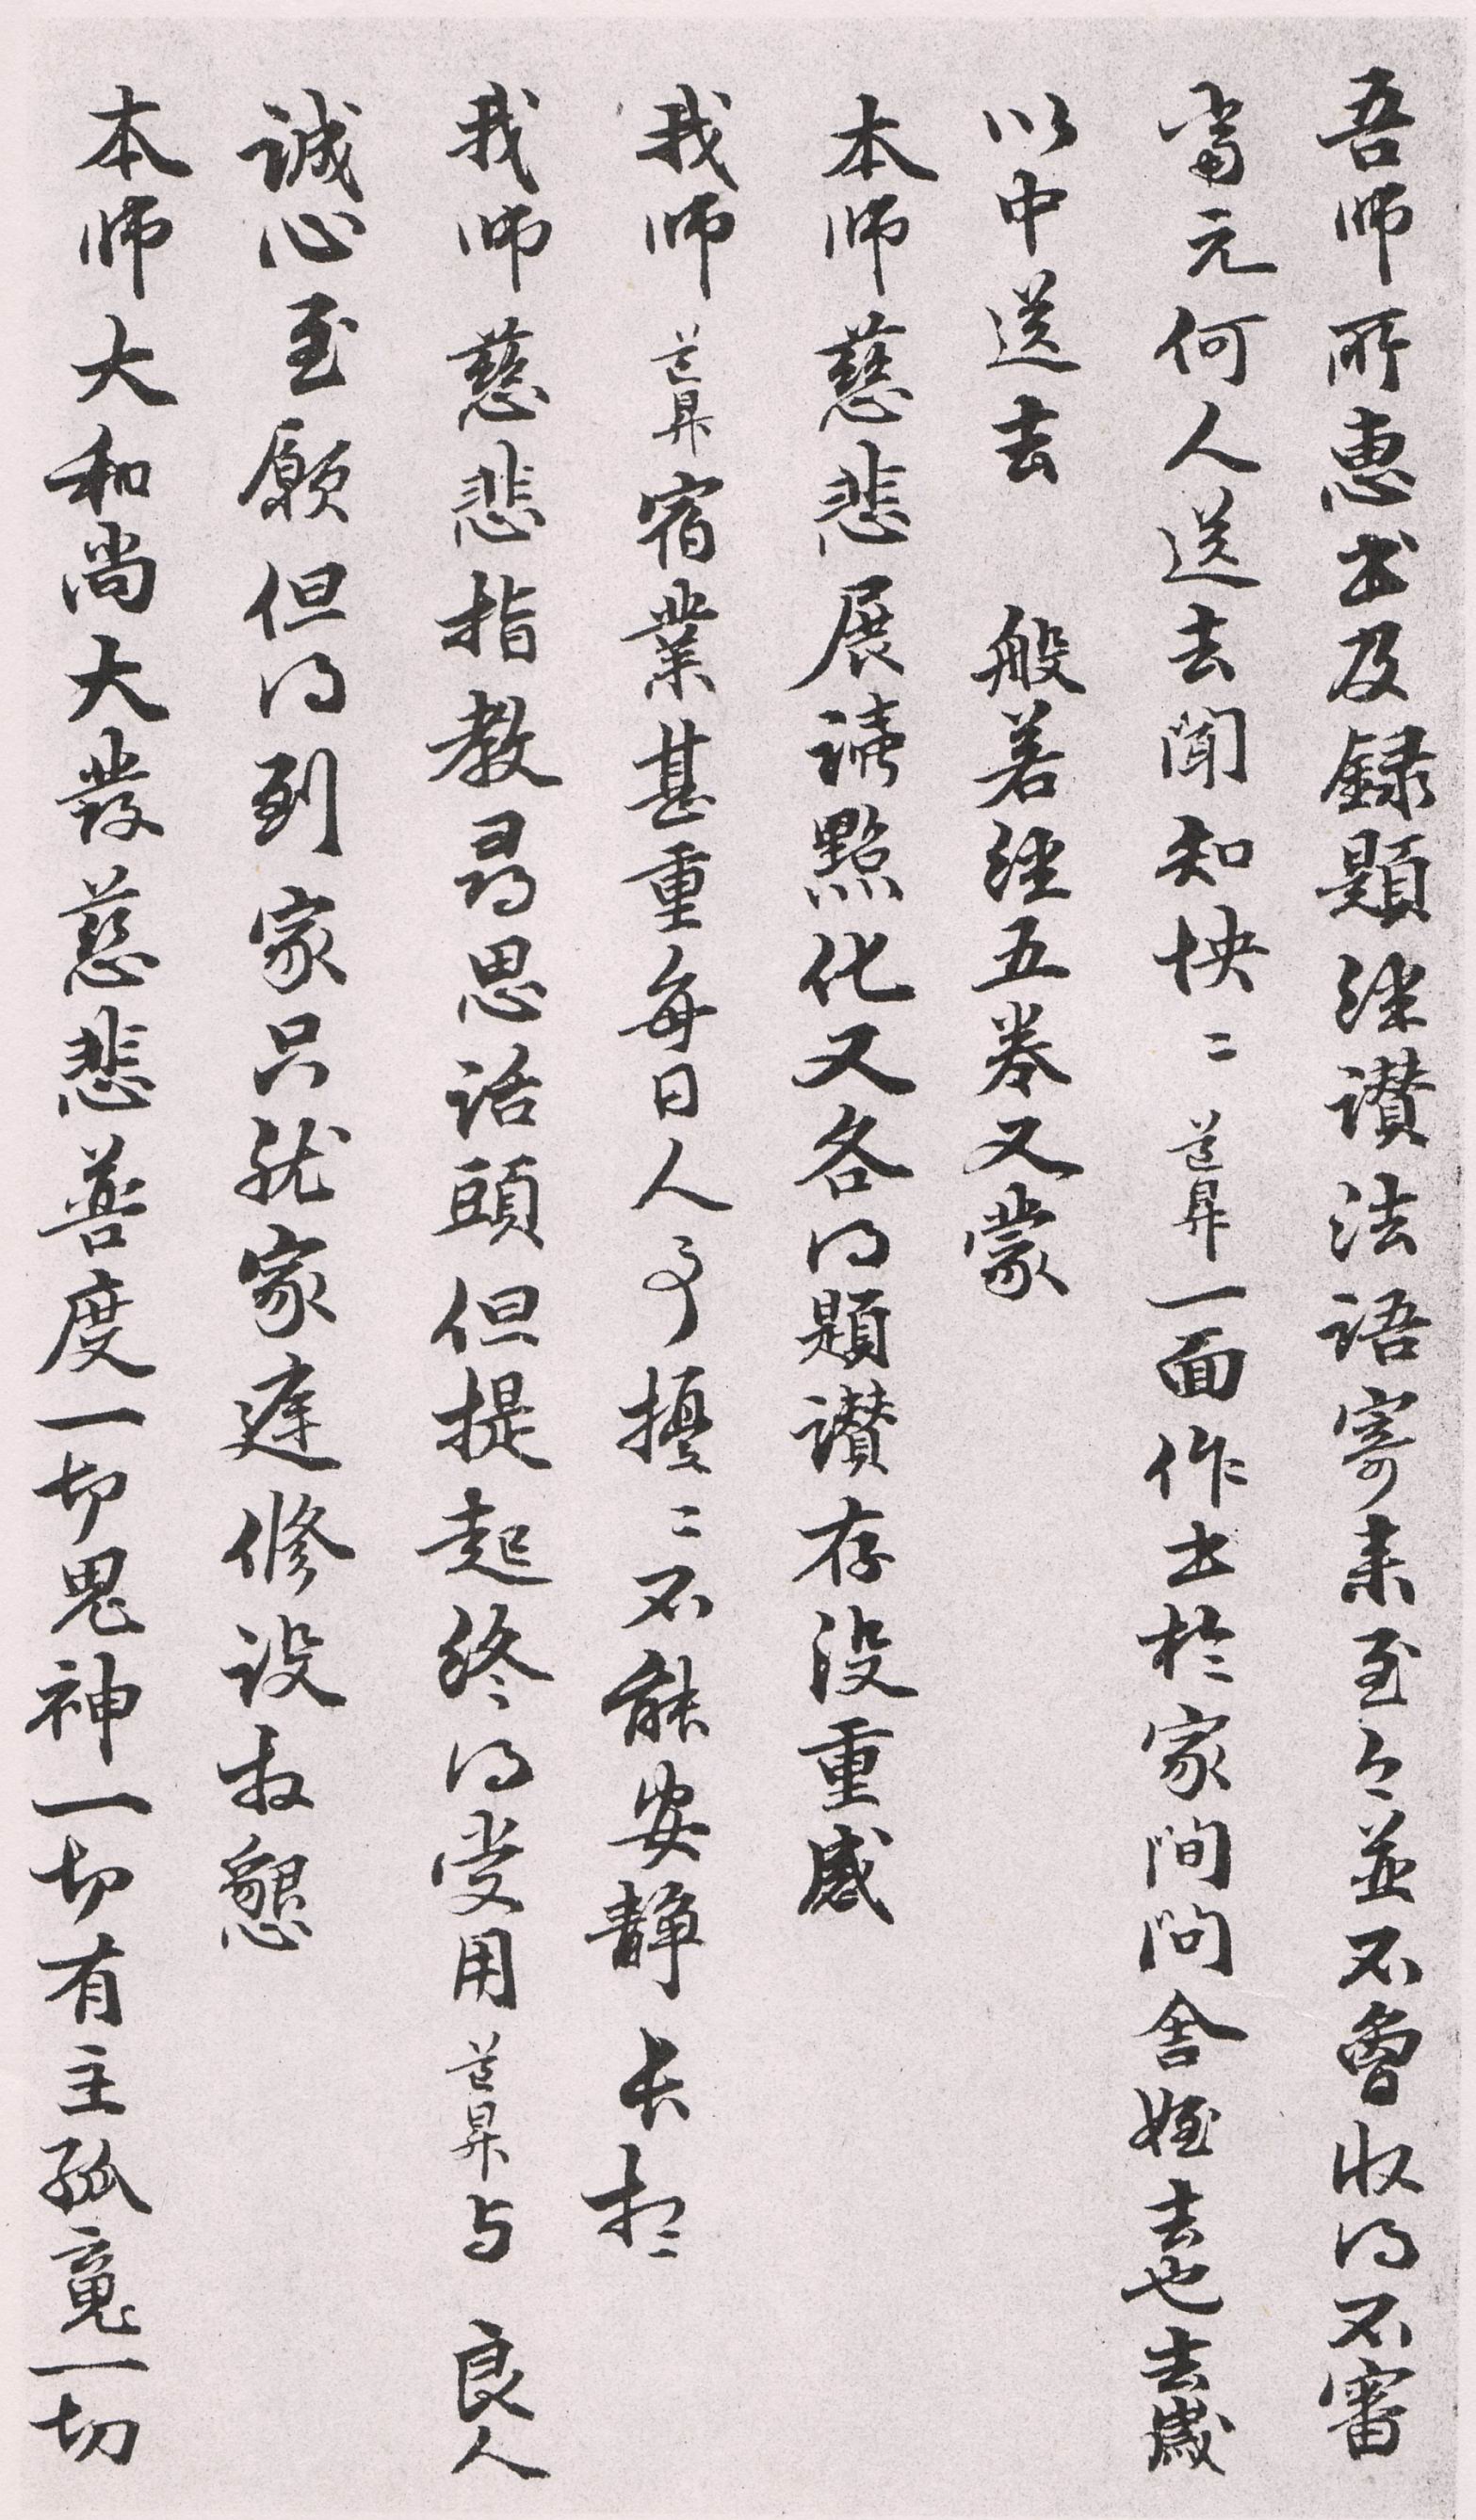 吾師所惠書及錄題經讚法語寄来至今並不曾收得不審
當元何人送去聞知怏〻道昇一面作書於家間問舍姪去也去歲
以中送去 般若經五卷又蒙
本師慈悲展讀點化又各得題讚存没重感
我師道昇宿業甚重每日人事擾〻不能安静長想
我師慈悲指教尋思話頭但提起終得受用道昇与 良人
誠心至願但得到家只就家庭修設拔懇
本師大和尚大發慈悲普度一切鬼神一切有主孤䰟一切